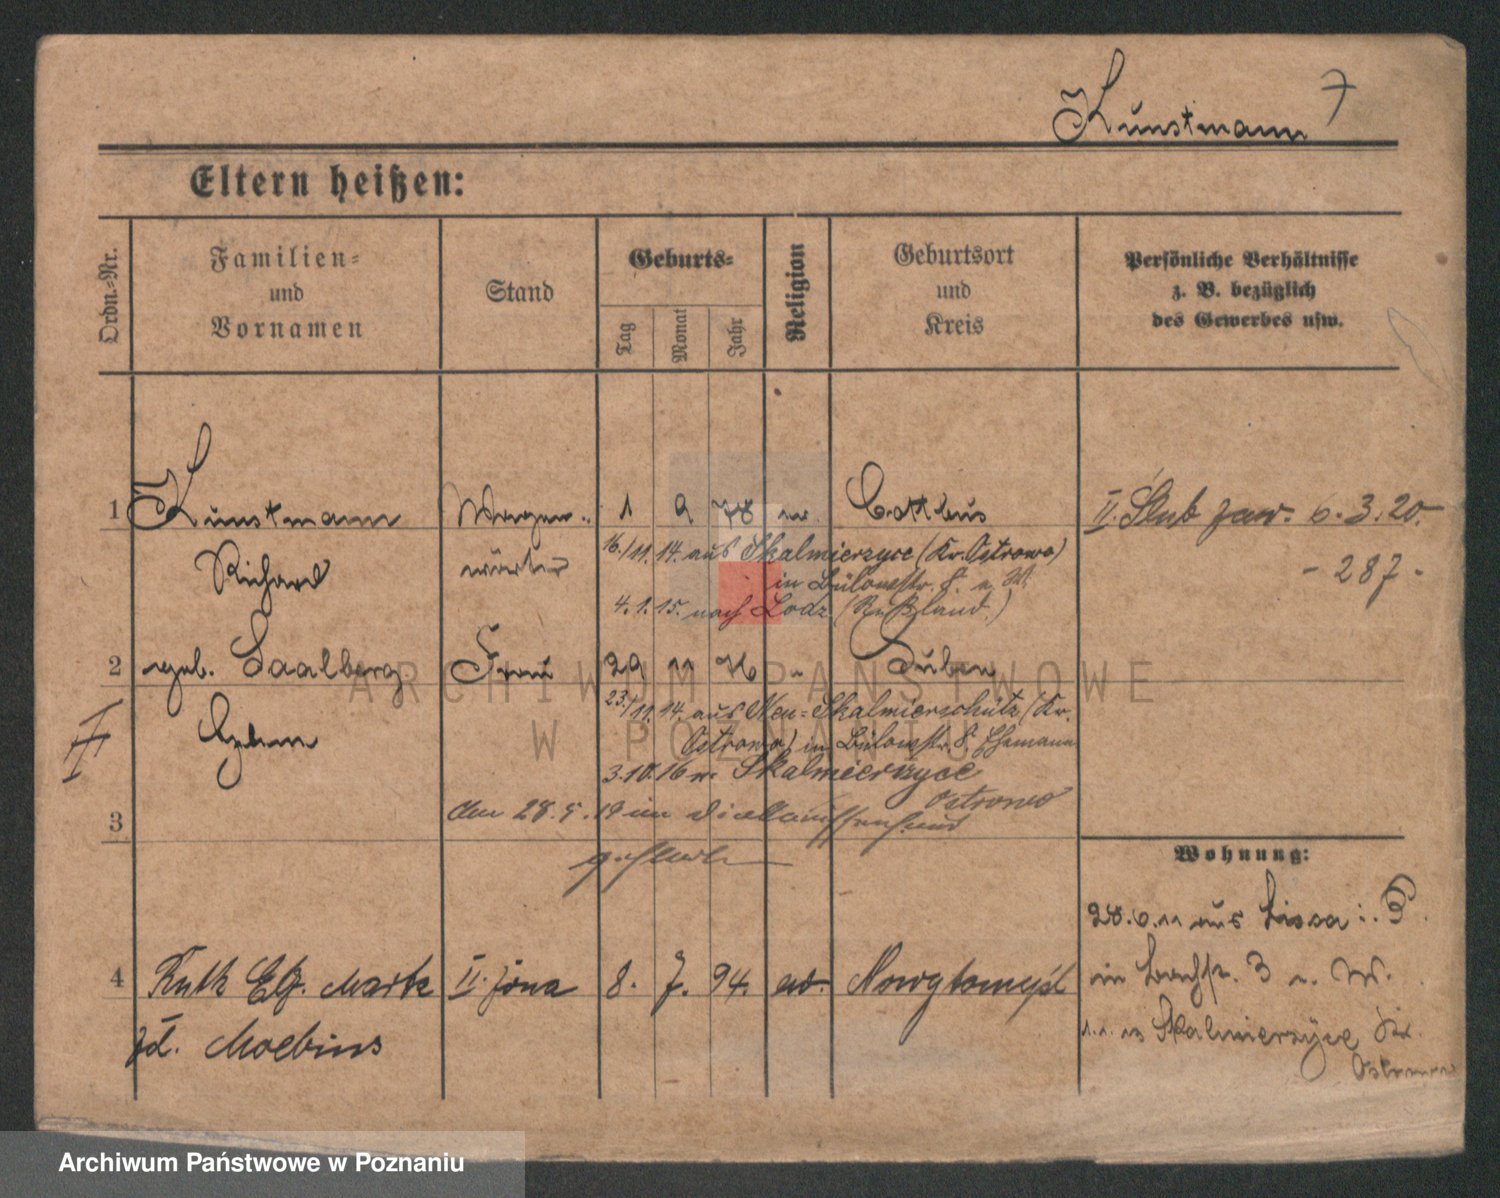 Kunstmann 7
Eltern heißen:
Ordn.-Nr.
Familien-
und
Vornamen
Stand
Geburts-
Tag
Monat
Jahr
Religion
Geburtsort
und
Kreis
Persönliche Verhältnisse
z. B. bezüglich
des Gewerbes usw.
1 Kunstmann Wagen- 1 9 78 ev. Cottbus II. Ślub zaw. 6.3.20.
Richard wärter
16./11.14. aus Skalmierzyce (Kr. Ostrowo)
in Bülowstr. 8.
- 287 -
4.1.15. nach Lodz (Rußland.)
2 geb. Saalberg Frau 29 11 76 " Düben
23./11.14. aus Neu-Skalmierschütz (Kr.
Ostrowo) in Bülowstr. 8, Ehemann
3.10.16 n. Skalmierzyce
Ostrowo
3 den 28.5.19 im
Wohnung:
28.6.11 aus Lissa i. P.
in 3
4 Ruth Marta II. żona 8. 7. 94. ew. Nowytomyśl
1.1.13 Skalmierzyce Kr.
Ostrowo
zd. Moebius
ARCHIWUM PAŃSTWOWE
W POZNANIU
Archiwum Państwowe w Poznaniu